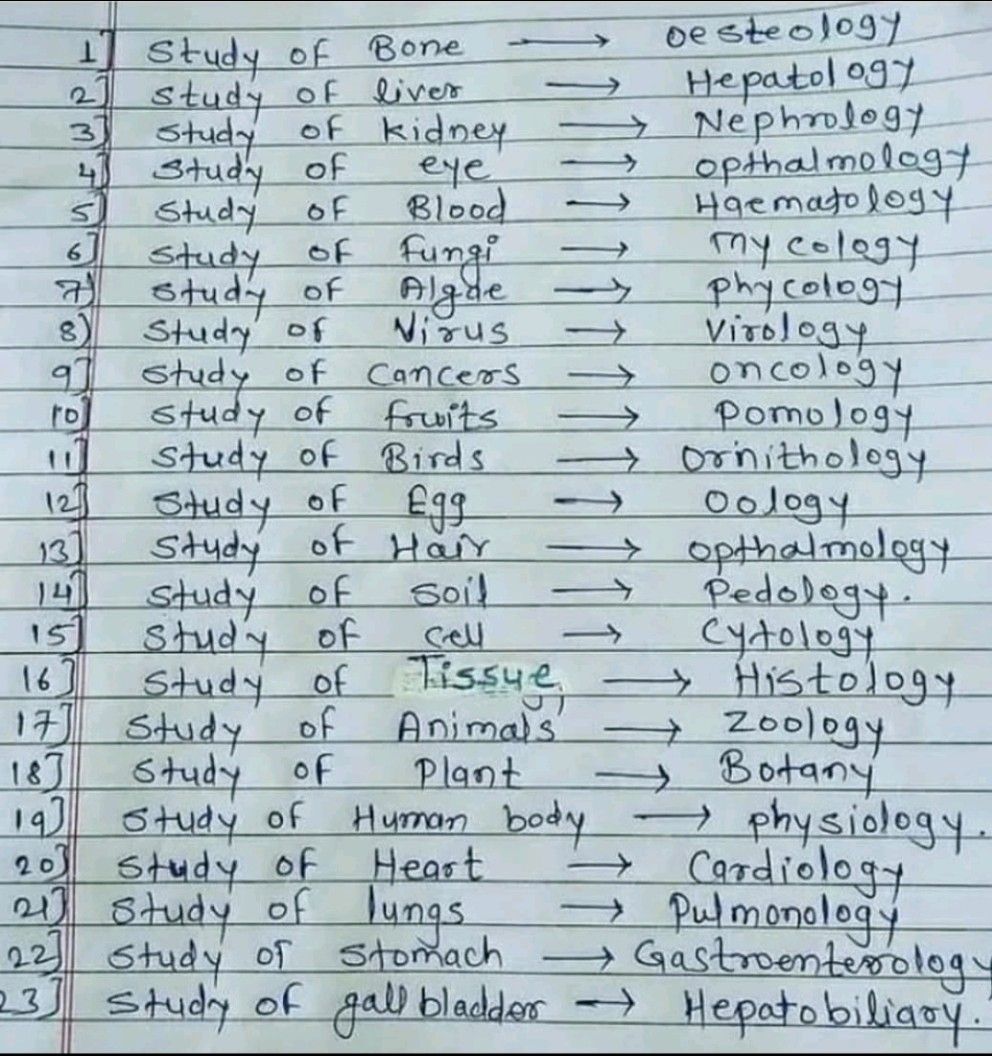 1] Study of Bone → oesteology
2] Study of liver → Hepatology
3] Study of kidney → Nephrology
4] Study of eye → opthalmology
5] Study of Blood → Haematology
6] Study of fungi → mycology
7] Study of Algae → phycology
8) Study of Virus → Virology
9] Study of Cancers → oncology
10] Study of fruits → Pomology
11] Study of Birds → Ornithology
12] Study of Egg → Oology
13] Study of Hair → opthalmology
14] Study of Soil → Pedology.
15] Study of Cell → Cytology
16] Study of Tissue, → Histology
17] Study of Animals → Zoology
18] Study of Plant → Botany
19] Study of Human body → physiology.
20] Study of Heart → Cardiology
21] Study of lungs → Pulmonology
22] Study of Stomach → Gastroenterology
23] Study of gall bladder → Hepatobiliary.